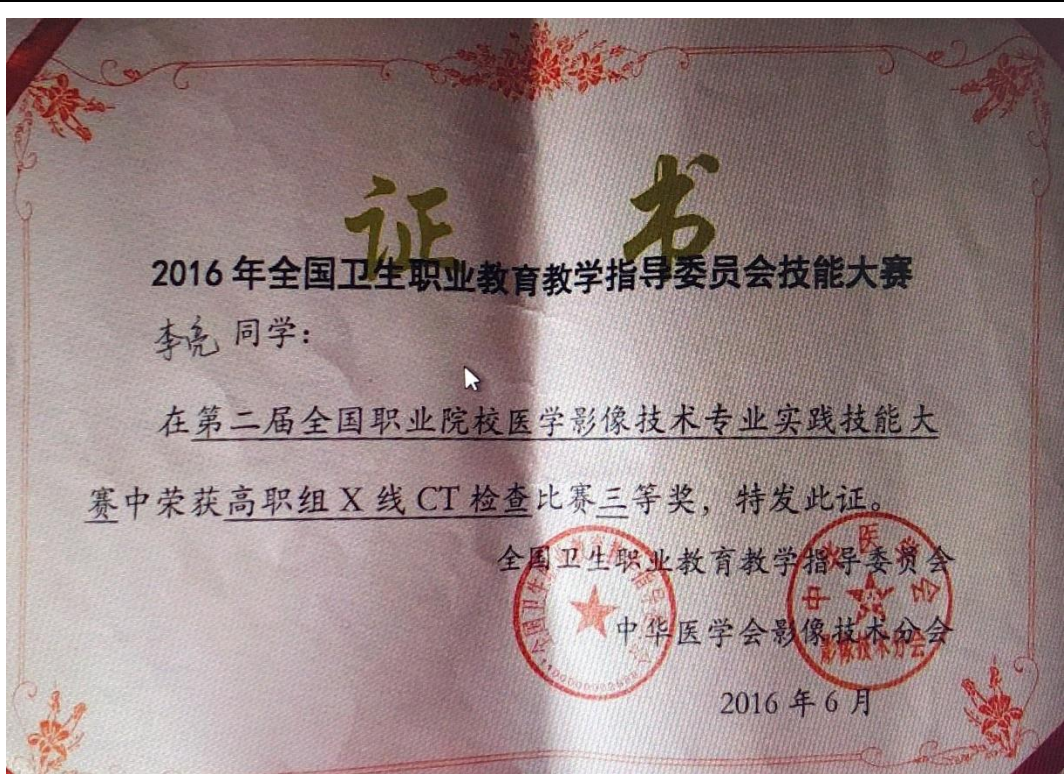 证 书
2016 年全国卫生职业教育教学指导委员会技能大赛
李亮 同学：
在第二届全国职业院校医学影像技术专业实践技能大
赛中荣获高职组 X 线 CT 检查比赛三等奖，特发此证。
全国卫生职业教育教学指导委员会
中华医学会影像技术分会
2016 年 6 月
中华医学会
影像技术分会